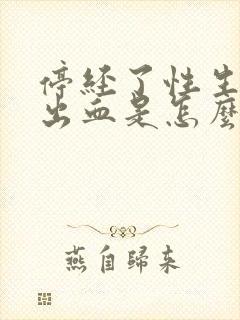 停经了性生
出血是怎麼
燕自歸来